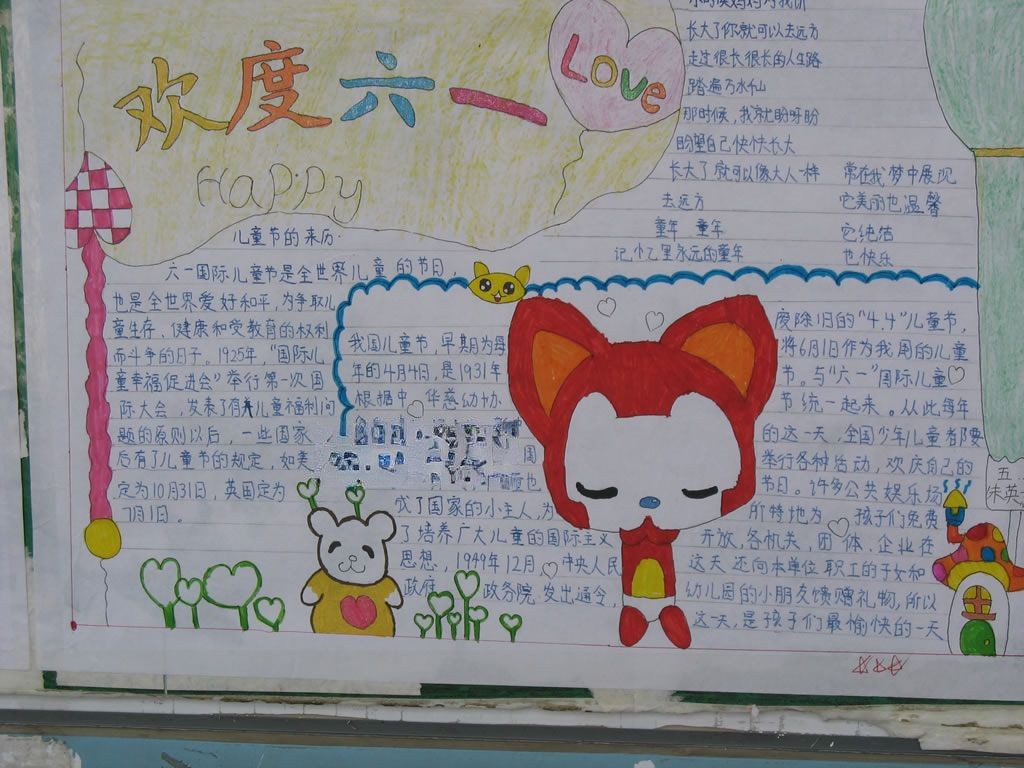 欢度六一
Love
HaPPy
长大了你就可以去远方
走过很长很长的人生路
踏遍万水仙
那时候，我就盼呀盼
盼望自己快快长大
长大了就可以像大人一样
去远方
童年 童年
记忆里永远的童年
常在我梦中展现
它美丽也温馨
它纯洁
也快乐
儿童节的来历
六一国际儿童节是全世界儿童的节日，
也是全世界爱好和平，为争取儿
童生存、健康和受教育的权利
而斗争的日子。1925年，“国际儿
童幸福促进会”举行第一次国
际大会，发表了有关儿童福利问
题的原则以后，一些国家
后有了儿童节的规定，如美
定为10月31日，英国定为
7月1日。
我国儿童节，早期为每
年的4月4日，是1931年
根据中华慈幼协
国
也
成了国家的小主人，为
了培养广大儿童的国际主义
思想，1949年12月，中央人民
政府 政务院发出通令，
废除旧的“4.4”儿童节，
将6月1日作为我用的儿童
节。与“六一”国际儿童
节统一起来。从此每年
的这一天，全国少年儿童都要
举行各种活动，欢庆自己的
节日。许多公共娱乐场
所特地为 孩子们免费
开放，各机关，团体，企业在
这天还向本单位职工的子女和
幼儿园的小朋友馈赠礼物，所以
这一天，是孩子们最愉快的一天
五
朱英